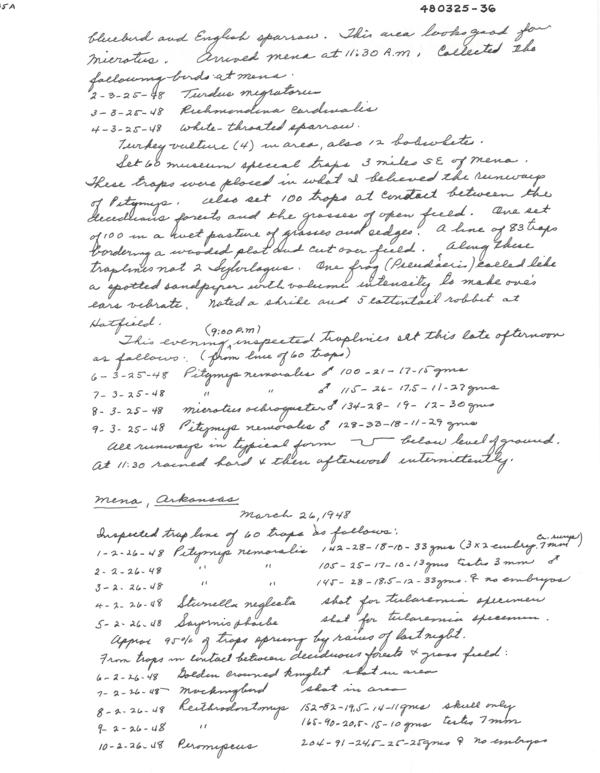 5A
480325-36
bluebird and English sparrow. This area looks good for
Microtus. Arrived Mena at 11:30 A.M. Collected the
following birds at Mena.
2-3-25-48 Turdus migratorius
3-3-25-48 Richmondina cardinalis
4-3-25-48 White-throated sparrow.
Turkey vulture (4) in area, also 12 bobwhite.
Set 60 museum special traps 3 miles SE of Mena.
These traps were placed in what I believed the runways
of Pitymys. Also set 100 traps at contact between the
deciduous forests and the grasses of open field. One set
of 100 in a wet pasture of grasses and sedges. A line of 83 traps
bordering a wooded plot and cut over field. Along these
traplines not 2 Sylvilagus. One frog (Pseudacris) called like
a spotted sandpiper with volume intensity to make one's
ears vibrate. Noted a shrike and 5 cottontail rabbit at
Hatfield.
(9:00 P.M)
This evening, inspected traplines set this late afternoon
as follows: (from line of 60 traps)
6-3-25-48 Pitymys nemoralis ♂ 100-21-17-15 gms
7-3-25-48 " " ♂ 115-26-17.5-11-27 gms
8-3-25-48 Microtus ochrogaster ♂ 134-28-19-12-30 gms
9-3-25-48 Pitymys nemoralis ♂ 128-23-18-11-29 gms
All runways in typical form below level of ground.
At 11:30 rained hard & then afterword intermittently.
Mena, Arkansas
March 26, 1948
Inspected trap line of 60 traps as follows:
1-2-26-48 Pitymys nemoralis 142-28-18-10-33 gms (3x2 embry. 7mm)
2-2-26-48 " " 105-25-17-10-13 gms testes 3 mm ♂
3-2-26-48 " " 145-28-18.5-12-33 gms. ♀ no embryos
4-2-26-48 Sturnella neglecta shot for tularemia specimen
5-2-26-48 Sayornis phoebe shot for tularemia specimen.
Approx 95% of traps sprung by rains of last night.
From traps in contact between deciduous forests & grass field:
6-2-26-48 Golden crowned kinglet shot in area
7-2-26-48 Mockingbird shot in area
8-2-26-48 Reithrodontomys 152-82-19.5-14-11 gms skull only
9-2-26-48 " 165-90-20.5-15-10 gms testes 7mm
10-2-26-48 Peromyscus 204-91-24.5-25-25 gms ♀ no embryos